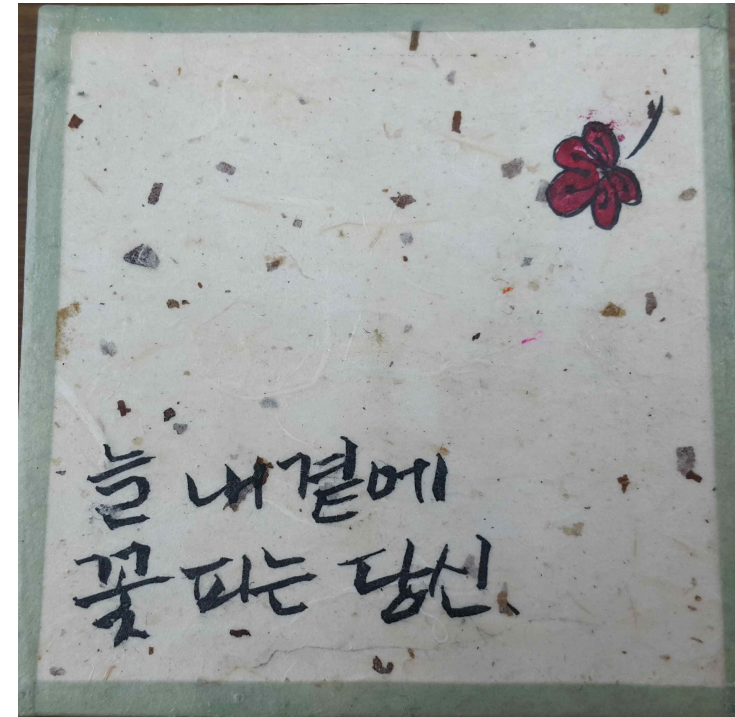 늘 내 곁에
꽃 피는 당신.